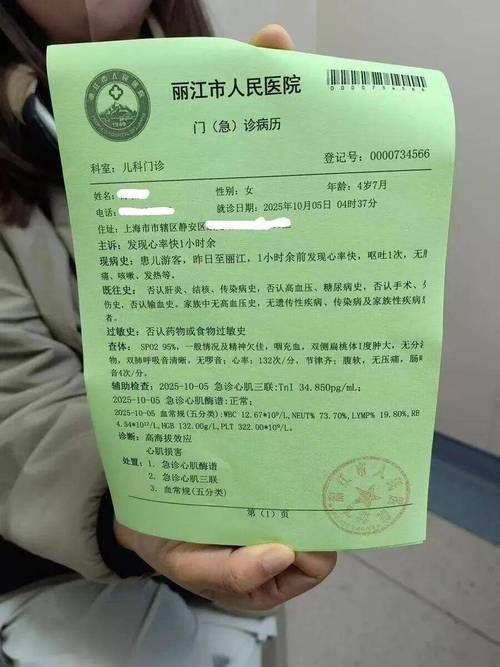 丽江市人民医院
1949
0000734566
丽江市人民医院
门（急）诊病历
科室：儿科门诊
登记号：0000734566
姓名：
性别：女
年龄：4岁7月
电话：
就诊日期：2025年10月05日 04时37分
住址：上海市市辖区静安区
主诉：发现心率快1小时余
现病史：患儿游客，昨日至丽江，1小时余前发现心率快，呕吐1次，无
痛、咳嗽、发热等。
既往史：否认肝炎、结核、传染病史，否认高血压、糖尿病史，否认手术、外
伤史，否认输血史，家族中无高血压史，无遗传性疾病、传染病及家族性疾病
过敏史：否认药物或食物过敏史
查体：SPO2 95%，一般情况及精神欠佳，咽充血，双侧扁桃体I度肿大，无分
，双肺呼吸音清晰，无啰音；心率：132次/分，节律齐；腹软，无压痛，肠
音4次/分。
辅助检查：2025-10-05 急诊心肌三联:TnI 34.850pg/mL;
2025-10-05 急诊心肌酶谱:正常;
2025-10-05 血常规(五分类):WBC 12.67*10⁹/L,NEUT% 73.70%,LYMP% 19.80%,RB
4.54*10¹²/L,HGB 132.00g/L,PLT 322.00*10⁹/L
诊断：高海拔效应
心肌损害
处置：1. 急诊心肌酶谱
2. 急诊心肌三联
3. 血常规(五分类)
第（1）页
丽江市人民